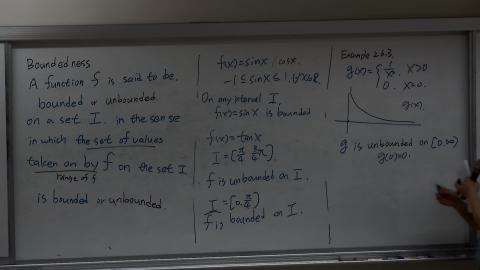 Boundedness
A function f is said to be
bounded or unbounded
on a set I. in the sense
in which the set of values
taken on by f on the set I
range of f
is bounded or unbounded.
f(x)=sinx / cosx.
-1 ≤ sinx ≤ 1, ∀x∈R.
On any interval I.
f(x)=sinx is bounded
f(x)=tanx
f is unbounded on I.
I=[0, π/4]
f is bounded on I.
Example 2.6.3.
g(x)={ 1/x, x>0
0, x=0.
g(x).
g is unbounded on [0,∞)
g(0)=0.